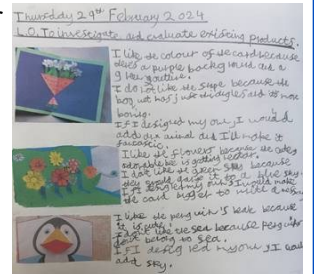 Thursday 29th February 2024
L.O. To investigate and evaluate existing products.
I like the colour of the card because
a purple background and a
grey outline.
I do not like the shape because the
has just triangles and its
boring.
If I designed my own, I would
add an animal and I'd make it
I like the flowers because the
is getting
I don't like the green because
a blue sky.
If I designed my own I would make
the card bigger to
I like the penguin's beak because
it is cute.
I don't like the sea because penguins
don't belong to sea.
If I designed my own, I would
add sky.